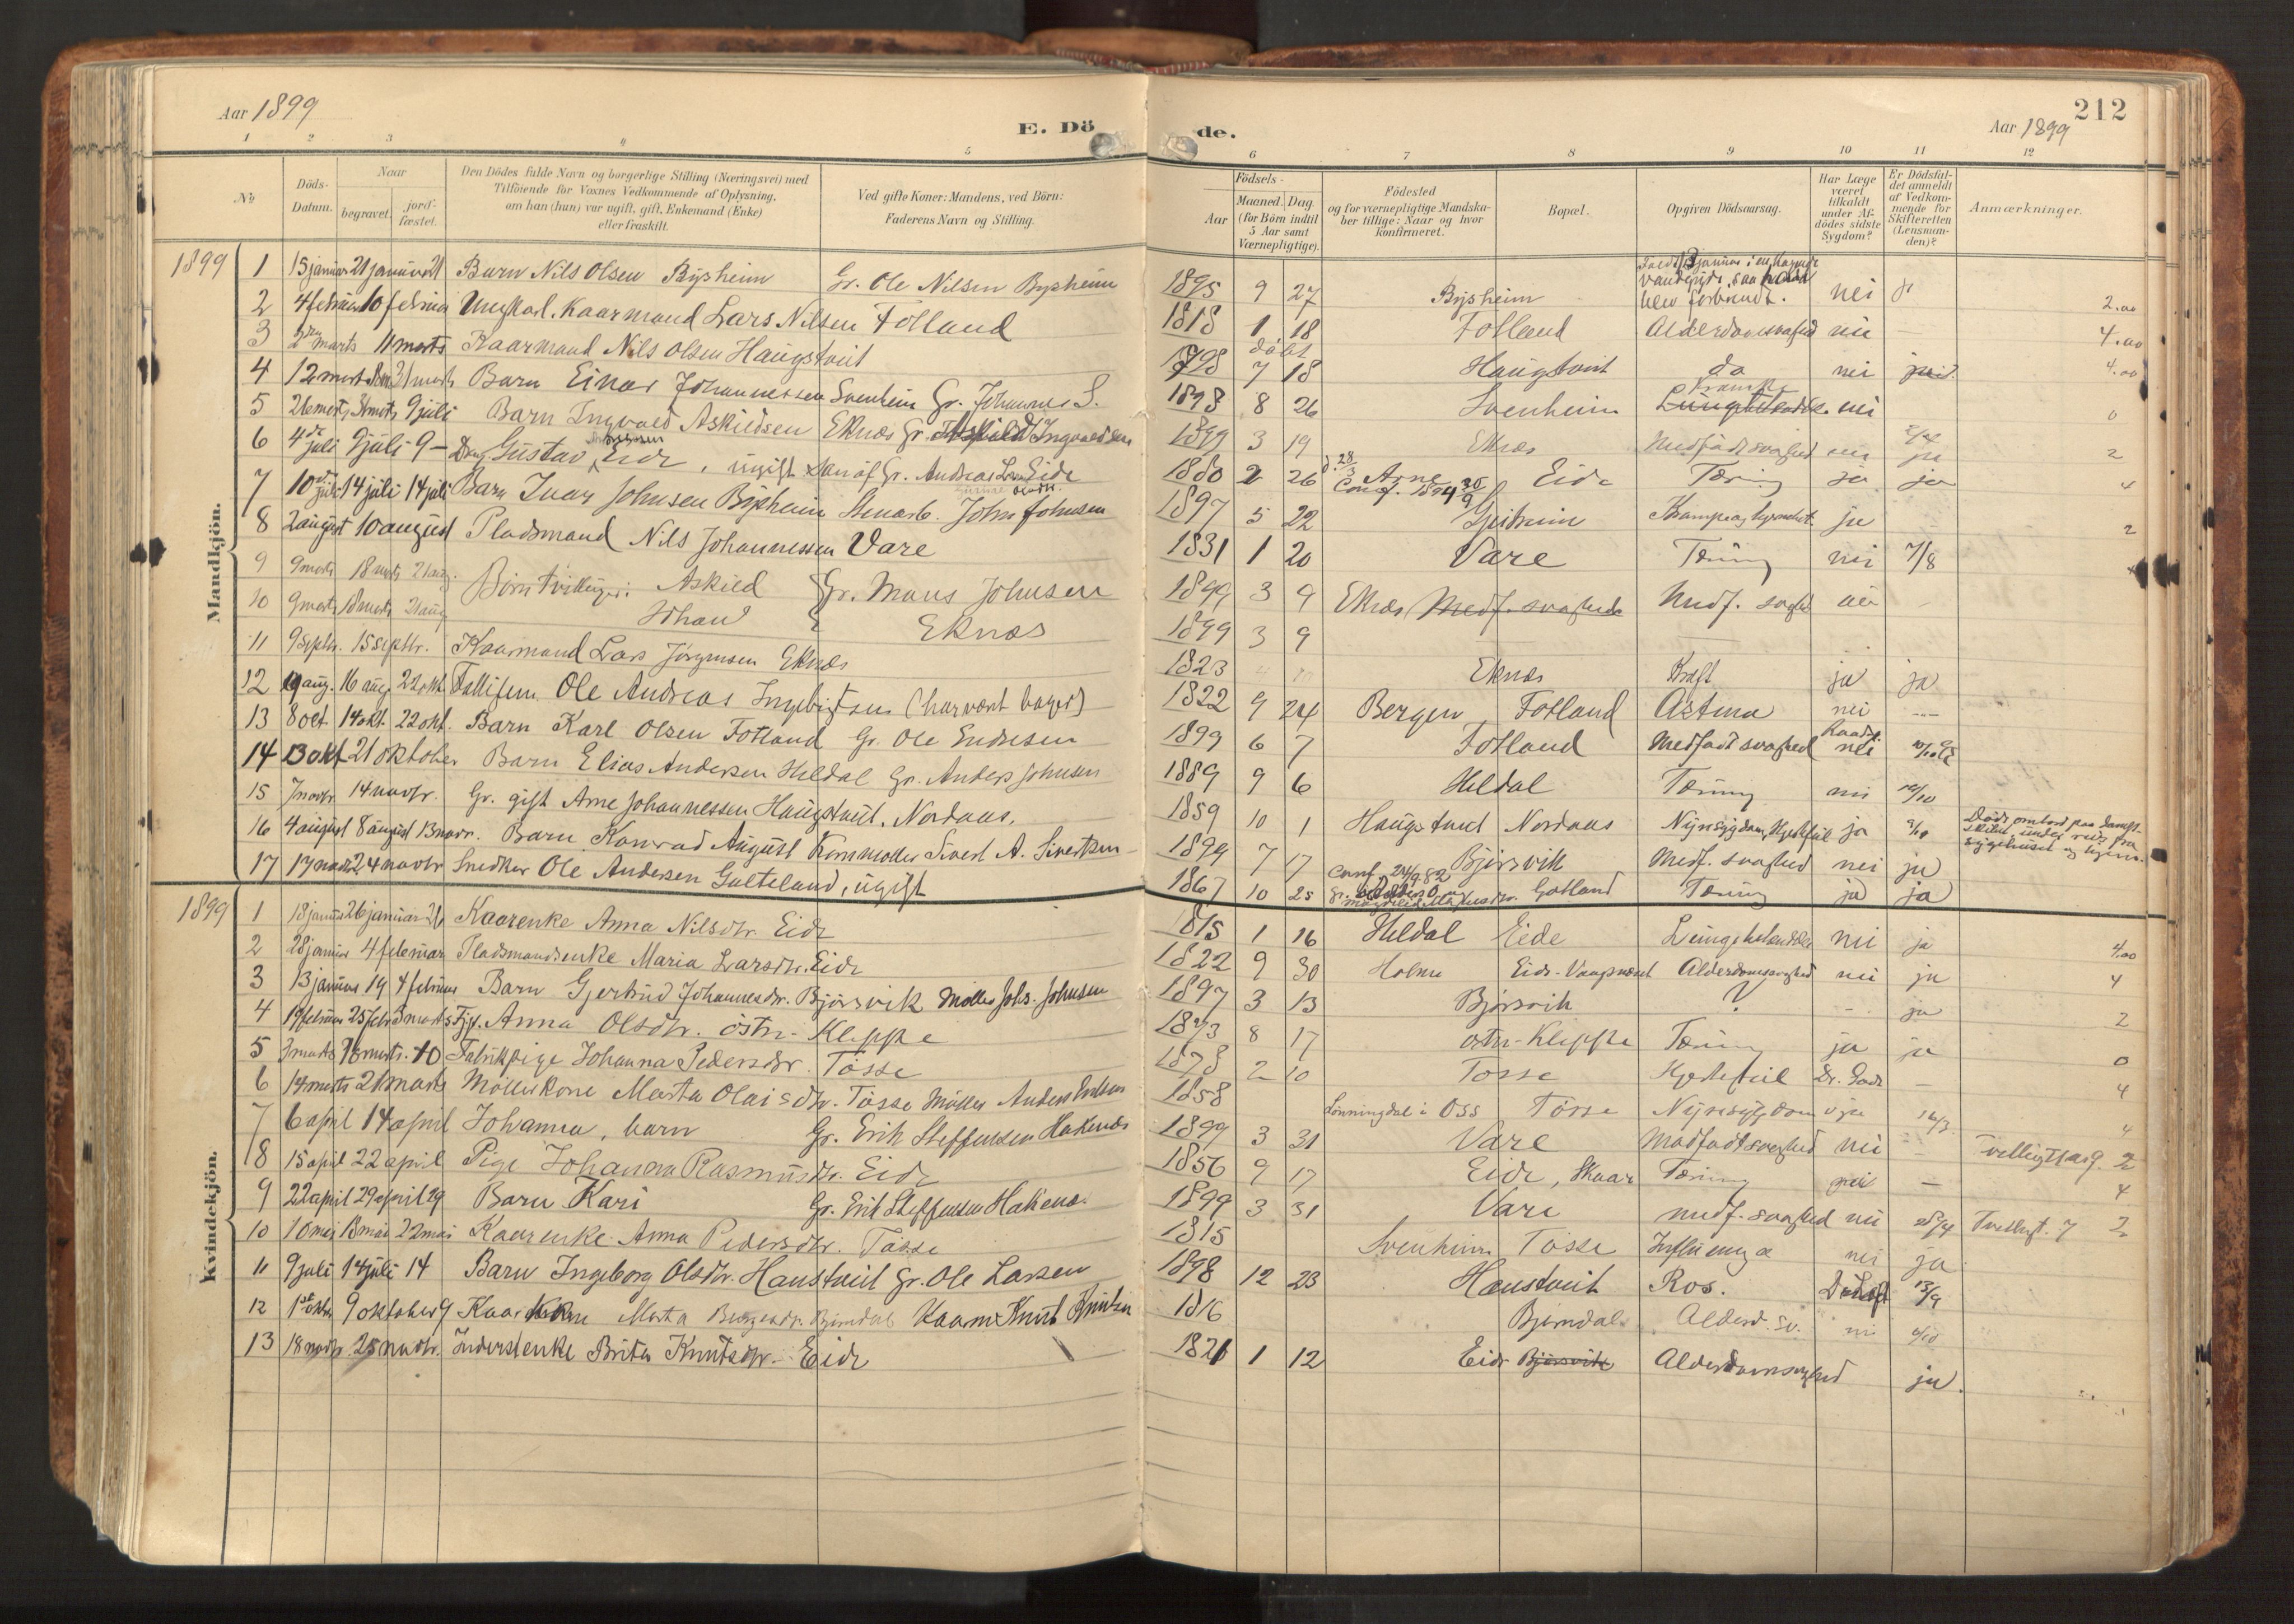 Aar 1899
E. Dö de.
212
Aar 1899
1 2 3 4 5 6 7 8 9 10 11 12
№
Döds-Datum.
Naar
begravet.
jord-fæstet.
Den Dödes fulde Navn og borgerlige Stilling (Næringsvei) med
Tilföiende for Voxnes Vedkommende af Oplysning,
om han (hun) var ugift, gift, Enkemand (Enke)
eller fraskilt.
Ved gifte Koner: Mandens, ved Börn:
Faderens Navn og Stilling.
Födsels-
Aar
Maaned. Dag.
(for Börn indtil
5 Aar samt
Værnepligtige).
Födested
og for værnepligtige Mandska-
ber tillige: Naar og hvor
konfirmeret.
Bopæl.
Opgiven Dödsaarsag.
Har Læge
været
tilkaldt
under Af-
dödes sidste
Sygdom?
Er Dödsfal-
det anmeldt
af Vedkom-
mende for
Skifteretten
(Lensman-
den)?
Anmærkninger.
Mandkjön.
1899 1 15 januar 21 januar 21 Barn Nils Olsen Bysheim Gr. Ole Nilsen Bysheim 1895 9 27 Bysheim nei ja 2.00
2 4 februar 10 februar Ungkarl. Kaarmand Lars Nilsen Fotland 1818 1 18 Fotland Alderdomssvaghed nei - 4.00
3 2 marts 11 marts Kaarmand Nils Olsen Haugstveit 1798 döbt 7 18 Haugstveit do nei 4.00
4 12 marts 31 marts Barn Einar Johannessen Svenheim Gr. Johannes S. 1898 8 26 Svenheim Krampe nei 0
5 26 marts 31 marts 9 juli Barn Ingvald Askildsen Eknæs Gr. Askild Ingvaldsen 1899 3 19 Eknæs Medfödt svaghed nei ja 2
6 4 juli 9 juli 9 - Dreng Gustav Eide, ugift sön af Gr. Andreas Eide 1880 2 26 Arne Conf. 1894 30/9 Eide Tæring ja ja 4
7 10 juli 14 juli 14 juli Barn Ivar Johnsen Bysheim Stenarb. John Johnsen 1897 5 22 Gjeitheim ja 2
8 2 august 10 august Pladsmand Nils Johannessen Vare 1831 1 20 Vare Tæring nei 7/8
9 9 marts 18 marts 21 aug. Börn tvillinger: Askild Gr. Mons Johnsen 1899 3 9 Eknæs Medf. svaghed Medf. svaghed nei
10 9 marts 18 marts 21 aug Johan Eknæs 1899 3 9
11 9 septbr. 15 septbr. Kaarmand Lars Jörgensen Eknæs 1823 Eknæs Kræft ja ja
12 16 aug. 22 okt. Fattiglem Ole Andreas Ingebrigtsen (har vært bager) 1822 9 24 Bergen Fotland Astma nei
13 8 oct. 14 okt. 22 okt. Barn Karl Olsen Fotland Gr. Ole Endresen 1899 6 7 Fotland Medfödt svaghed nei
14 13 okt 21 oktober Barn Elias Andersen Heldal Gr. Anders Johnsen 1889 9 6 Heldal Tæring nei
15 7 novbr. 14 novbr. Gr. gift Arne Johannessen Haugstveit. Nordaas. 1859 10 1 Haugstveit Nordaas Nyresygdom, Hjertefeil ja Döde ombord paa damp-
16 4 august 8 august 13 novbr. Barn Konrad August Kornmöller Sivert A. Sivertsen 1899 7 17 Björsvik Medf. svaghed nei ja
17 17 novbr 24 novbr Snedker Ole Andersen Gulteland, ugift 1867 10 25 Conf. 24/9 82 Gotland Tæring ja ja
Kvindekjön.
1899 1 18 januar 26 januar 26 Kaarenke Anna Nilsdtr. Eide 1815 1 16 Heldal Eide Lungebetændelse nei ja 4.00
2 28 januar 4 februar Pladsmandsenke Maria Larsdtr. Eide 1822 9 30 Holme Eide - Vaagnæset Alderdomssvaghed nei ja 4
3 13 januar 19 4 februar Barn Gjertrud Johannesdtr. Björsvik Möller Johs. Johnsen 1897 3 13 Björsvik ? - ja 2
4 19 februar 25 febr 3 marts Pige. Anna Olsdtr. östre - Kleppe 1873 8 17 östre - Kleppe Tæring ja ja 0
5 3 marts 10 marts. 10 Fabrikpige Johanna Pedersdtr. Tösse 1878 2 10 Tösse Hjertefeil - 4
6 14 marts 21 marts Möllerkone Marta Olaisdtr. Tösse Möller Anders Eriksen 1858 Lönningdal i Oss Tösse Nyresygdom 4
7 6 april 14 april Johanna, barn Gr. Erik Steffensen Hakenæs 1899 3 31 Vare Medfödt svaghed nei - 2
8 15 april 22 april Pige Johanna Rasmusdtr. Eide 1856 9 17 Eide, Skaar Tæring nei - 4
9 22 april 29 april 29 Barn Kari Gr. Erik Steffensen Hakenæs. 1899 3 31 Vare medf. svaghed nei 7 2
10 10 mai 18 mai 22 mai Kaarenke Anna Pedersdtr. Tösse 1815 Svenheim Tösse Influenza nei ja
11 9 juli 14 juli 14 Barn Ingeborg Olsdtr. Haustveit Gr. Ole Larsen 1898 12 23 Haustveit Ros.
12 1ste oktbr 9 oktober 9 Marta Björndal Kaarm. Knut Knutsen 1816 Björndal Alderd. sv. nei
13 18 novbr 25 novbr. Inderstenke Brita Knutsdtr. - Eide 1821 1 12 Eide Björsvik Alderdomssvaghed ja.